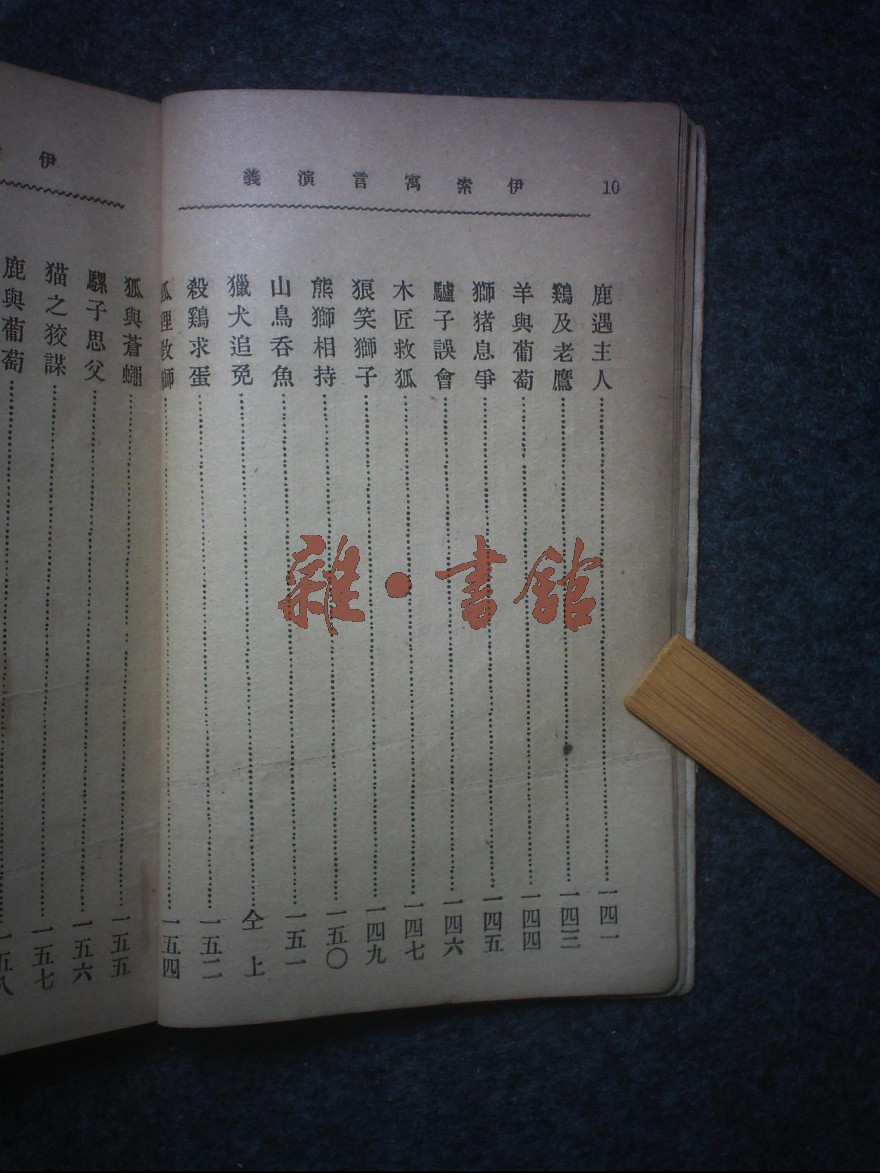 10
伊索寓言演義
鹿遇主人 一四一
鷄及老鷹 一四三
羊與葡萄 一四四
獅猪息爭 一四五
驢子誤會 一四六
木匠救狐 一四七
狼笑獅子 一四九
熊獅相持 一五〇
山鳥吞魚 一五一
獵犬追兎 仝上
殺鷄求蛋 一五二
狐狸救獅 一五四
伊
狐與蒼蠅 一五五
騾子思父 一五六
猫之狡謀 一五七
鹿與葡萄 一五八
雜·書館